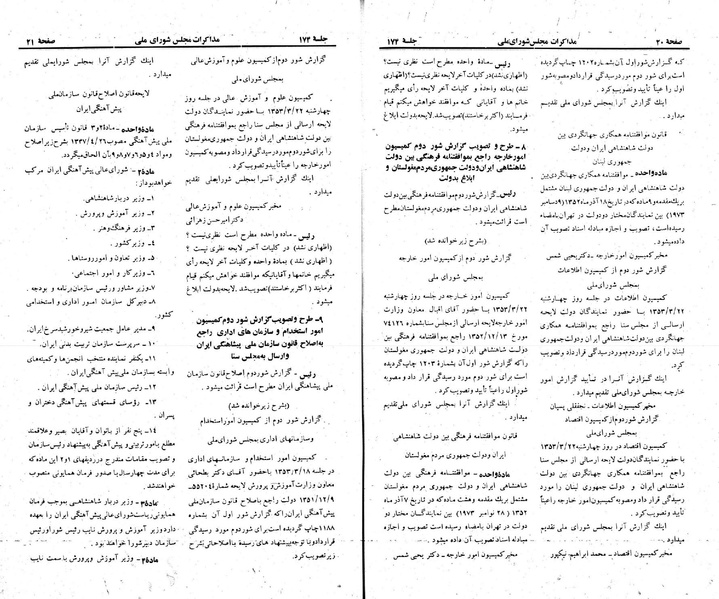 صفحهٔ ۲۰ مذاکرات مجلس شورای ملی جلسهٔ ۱۷۳
که گزارش شور اول آن بشماره ۱۲۰۲ چاپ گردیده
است برای شور دوم مورد رسیدگی قرار داد و مصوبه شور
اول را عیناً تأیید و تصویب کرد.
اینک گزارش آنرا بمجلس شورای ملی تقدیم
میدارد.
قانون موافقتنامه همکاری جهانگردی بین
دولت شاهنشاهی ایران و دولت
جمهوری لبنان
ماده واحده - موافقتنامه همکاری جهانگردی بین
دولت شاهنشاهی ایران و دولت جمهوری لبنان مشتمل بر
یک مقدمه و ماده که در تاریخ ۱۸ آذر ماه ۱۳۵۲ (۹ دسامبر
۱۹۷۳) بین نمایندگان مختار دو دولت در تهران بامضاء
رسیده است، تصویب و اجازه مبادله اسناد تصویب آن
داده میشود.
مخبر کمیسیون امور خارجه - دکتر یحیی شمس
گزارش شور دوم از کمیسیون اطلاعات
بمجلس شورای ملی
کمیسیون اطلاعات در جلسه روز چهارشنبه
۱۳۵۳/۳/۲۲ با حضور نمایندگان دولت لایحه
ارسالی از مجلس سنا راجع بموافقتنامه همکاری
جهانگردی بین دولت شاهنشاهی ایران و دولت جمهوری
لبنان را برای شور دوم مورد رسیدگی قرار داد و تصویب
کرد.
اینک گزارش آنرا در تأیید گزارش امور
خارجه بمجلس شورای ملی تقدیم میدارد.
مخبر کمیسیون اطلاعات -
گزارش شور دوم از کمیسیون اقتصاد
بمجلس شورای ملی
کمیسیون اقتصاد در روز چهارشنبه ۱۳۵۳/۳/۲۲
با حضور نمایندگان دولت لایحه ارسالی از مجلس سنا
راجع بموافقتنامه همکاری جهانگردی بین دولت
شاهنشاهی ایران و دولت جمهوری لبنان را مورد
رسیدگی قرار داد و مصوبه کمیسیون امور خارجه را عیناً
تأیید و تصویب کرد.
اینک گزارش آنرا بمجلس شورای ملی تقدیم
میدارد.
مخبر کمیسیون اقتصاد - محمد ابراهیم نیکپور
رئیس - ماده واحده مطرح است نظری نیست؟
(اظهاری نشد) در کلیات آخر لایحه نظری نیست؟
(اظهاری نشد) بماده واحده و کلیات آخر لایحه رأی میگیریم
خانم ها و آقایانی که موافقند خواهش میکنم قیام
فرمایند (اکثر برخاستند) تصویب شد. لایحه بدولت ابلاغ
میشود.
۸ - طرح و تصویب گزارش شور دوم کمیسیون
امور خارجه راجع بموافقتنامه فرهنگی بین دولت
شاهنشاهی ایران و دولت جمهوری مردم مغولستان و
ابلاغ بدولت
رئیس - گزارش شور دوم موافقتنامه فرهنگی بین دولت
شاهنشاهی ایران و دولت جمهوری مردم مغولستان مطرح
است قرائت میشود.
(بشرح زیر خوانده شد)
گزارش شور دوم از کمیسیون امور خارجه
بمجلس شورای ملی
کمیسیون امور خارجه در جلسه روز چهارشنبه
۱۳۵۳/۳/۲۲ با حضور آقای اقبال معاون وزارت
امور خارجه لایحه ارسالی از مجلس سنا بشماره ۷۴۱۲۶
مورخ ۱۳۵۲/۱۲/۱۳ راجع بموافقتنامه فرهنگی بین
دولت شاهنشاهی ایران و دولت جمهوری مغولستان
را که گزارش شور اول آن بشماره ۱۲۰۳ چاپ گردیده
است برای شور دوم مورد رسیدگی قرار داد و مصوبه
شور اول را عیناً تأیید و تصویب کرد.
اینک گزارش آنرا بمجلس شورای ملی تقدیم
میدارد.
قانون موافقتنامه فرهنگی بین دولت شاهنشاهی
ایران و دولت جمهوری مردم مغولستان
ماده واحده - موافقتنامه فرهنگی بین دولت
شاهنشاهی ایران و دولت جمهوری مردم مغولستان
مشتمل بر یک مقدمه و هشت ماده که در تاریخ ۷ آذر ماه
۱۳۵۲ (۲۸ نوامبر ۱۹۷۳) بین نمایندگان مختار دو
دولت در تهران بامضاء رسیده است تصویب و اجازه
مبادله اسناد تصویب آن داده میشود.
مخبر کمیسیون امور خارجه - دکتر یحیی شمس
صفحهٔ ۲۱ مذاکرات مجلس شورای ملی جلسهٔ ۱۷۳
گزارش شور دوم از کمیسیون علوم و آموزش عالی
بمجلس شورای ملی
کمیسیون علوم و آموزش عالی در جلسه روز
چهارشنبه ۱۳۵۳/۳/۲۲ با حضور نمایندگان دولت
لایحه ارسالی از مجلس سنا راجع بموافقتنامه فرهنگی
بین دولت شاهنشاهی ایران و دولت جمهوری مغولستان
را برای شور دوم مورد رسیدگی قرار داد و گزارش کمیسیون
امور خارجه را عیناً تأیید و تصویب کرد.
اینک گزارش آنرا بمجلس شورایملی تقدیم
میدارد.
مخبر کمیسیون علوم و آموزش عالی
دکتر امیرحسن زهرائی
رئیس - ماده واحده مطرح است نظری نیست؟
(اظهاری نشد) در کلیات آخر لایحه نظری نیست؟
(اظهاری نشد) بماده واحده و کلیات آخر لایحه رأی
میگیریم خانمها و آقایانیکه موافقند خواهش میکنم قیام
فرمایند (اکثر برخاستند) تصویب شد. لایحه بدولت ابلاغ
میشود.
۹ - طرح و تصویب گزارش شور دوم کمیسیون
امور استخدام و سازمان های اداری راجع
به اصلاح قانون سازمان ملی پیشاهنگی ایران
و ارسال به مجلس سنا
رئیس - گزارش شور دوم اصلاح قانون سازمان
ملی پیشاهنگی ایران مطرح است قرائت میشود.
(بشرح زیر خوانده شد)
گزارش شور دوم از کمیسیون امور استخدام
و سازمانهای اداری بمجلس شورای ملی
کمیسیون امور استخدام و سازمانهای اداری
در جلسه ۱۳۵۳/۳/۱۸ با حضور آقای دکتر بطحائی
معاون وزارت آموزش و پرورش لایحه شماره ۵۵۲۰۴-
۱۳۵۱/۱۲/۹ دولت راجع باصلاح قانون سازمان ملی
پیش آهنگی ایران را که گزارش شور اول آن بشماره
۱۱۸۸ چاپ گردیده است برای شور دوم مورد رسیدگی
قرار داد و با توجه بپیشنهاد های رسیده با اصلاحاتی بشرح
زیر تصویب کرد.
اینک گزارش آنرا بمجلس شورایملی تقدیم
میدارد.
لایحه قانون اصلاح قانون سازمان ملی
پیش آهنگی ایران
ماده واحده - ماده ۲ و ۳ قانون تأسیس سازمان
ملی پیش آهنگی مصوب ۱۳۳۷/۴/۲۶ بشرح زیر اصلاح
و مواد ۴ و ۵ و ۶ و ۷ و ۸ و ۹ بآن الحاق میگردد.
ماده ۲ - شورای عالی پیش آهنگی ایران مرکب
خواهد بود از:
۱- وزیر دربار شاهنشاهی.
۲- وزیر آموزش و پرورش.
۳- وزیر فرهنگ و هنر.
۴- وزیر کشور.
۵- وزیر تعاون و امور روستاها.
۶- وزیر کار و امور اجتماعی.
۷- وزیر مشاور و رئیس سازمان برنامه و بودجه.
۸- دبیر کل سازمان امور اداری و استخدامی
کشور.
۹- مدیر عامل جمعیت شیر و خورشید سرخ ایران.
۱۰- سرپرست سازمان تربیت بدنی ایران.
۱۱- یکنفر نماینده منتخب انجمن ها و کمیته های
وابسته بسازمان ملی پیش آهنگی ایران.
۱۲- رئیس سازمان ملی پیش آهنگی ایران.
۱۳- رؤسای قسمتهای پیش آهنگی دختران و
پسران.
۱۴- پنج نفر از بانوان و آقایان بصیر و علاقمند
مطلع بامور تربیتی و پیش آهنگی به پیشنهاد رئیس سازمان
و تصویب مقامات مندرج در ردیفهای ۱ و ۲ این ماده که
برای مدت چهار سال با صدور فرمان همایونی منصوب
خواهند شد.
ماده ۳ - وزیر دربار شاهنشاهی بموجب فرمان
همایونی ریاست شورای عالی پیش آهنگی ایران را بعهده
دارد وزیر آموزش و پرورش نایب رئیس شورا و رئیس
سازمان دبیر شورا خواهند بود.
ماده ۴ - وزیر آموزش و پرورش با سمت نایب